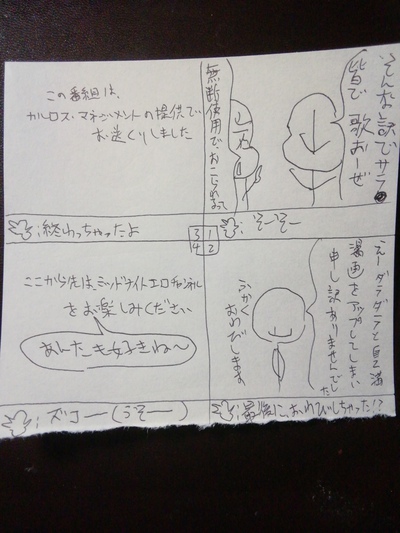 そんな訳でサラ
皆で歌おーぜ
無断使用で、おこられ
: そーそー
えーダラダラと自己満
漫画をアップしてしまい
申し訳ありませんでした
ふかく
おわびします
: 最後に、おわびしちゃった!?
この番組は、
カルロス・マネジメントの提供で
お送りしました
: 終わっちゃったよ
ここから先は、ミッドナイトエロチャンネル
をお楽しみください
あんたも好きね〜
: ズコー(うそー)
3 1
4 2